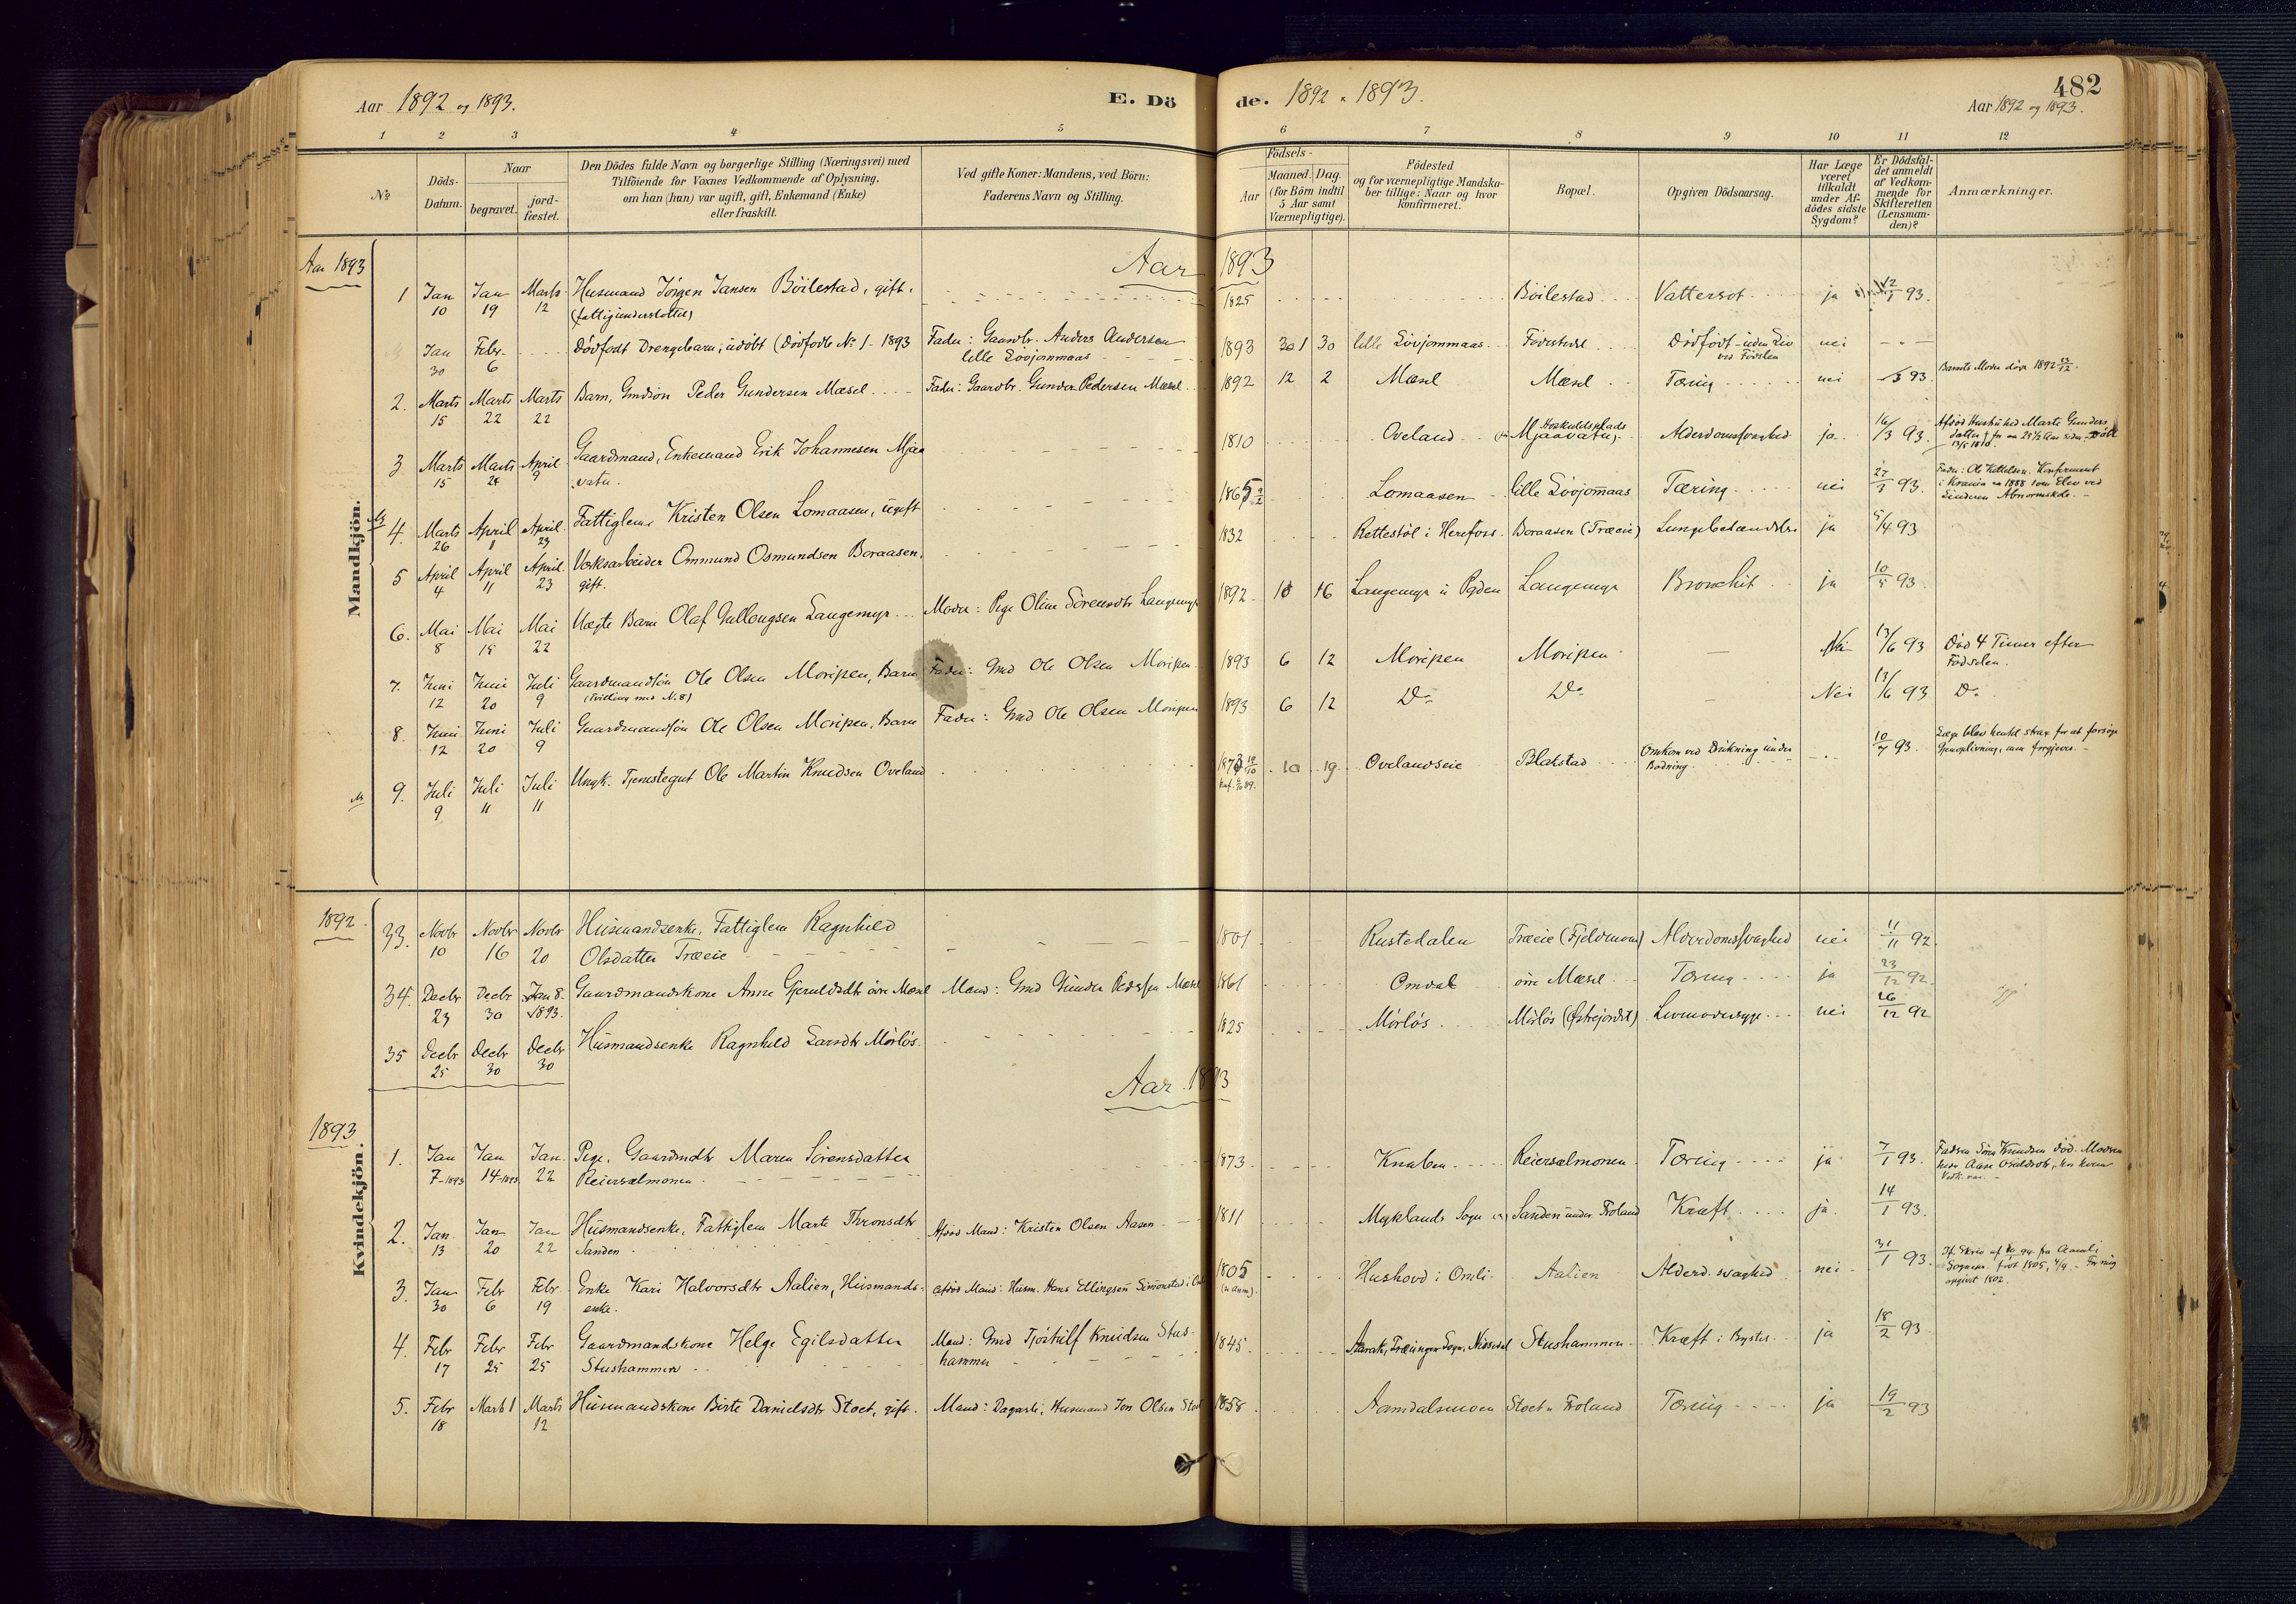 482
Aar 1892 og 1893.
E. Dö
de. 1892 " 1893.
Aar 1892 og 1893.
1 2 3 4 5 6 7 8 9 10 11 12
No
Döds-
Datum.
Naar
begravet.
jord-
fæstet.
Den Dödes fulde Navn og borgerlige Stilling (Næringsvei) med
Tilföiende for Voxnes Vedkommende af Oplysning,
om han (hun) var ugift, gift, Enkemand (Enke)
eller fraskilt.
Ved gifte Koner: Mandens, ved Börn:
Faderens Navn og Stilling.
Födsels-
Aar
Maaned. Dag.
(for Börn indtil
5 Aar samt
Værnepligtige).
Födested
og for værnepligtige Mandska-
ber tillige: Naar og hvor
konfirmeret.
Bopæl.
Opgiven Dödsaarsag.
Har Læge
været
tilkaldt
under Af-
dödes sidste
Sygdom?
Er Dödsfal-
det anmeldt
af Vedkom-
mende for
Skifteretten
(Lensman-
den)?
Anmærkninger.
Mandkjön.
Aar 1893
Aar 1893
1 Jan 10 Jan 19 Marts 12 Husmand Jörgen Jansen Böilestad, gift.
(fattigunderstöttet)
1825 Böilestad Vattersot ja 12/1 93.
Jan 30 Febr. 6 Dödfödt Drengebarn, udöbt (Dödfödte No 1 - 1893 Fader: Gaardbr. Anders Andersen
lille Lövjommaas
1893 1 30 lille Lövjommaas Födested Dödfödt - uden Liv
ved Födslen nei
2. Marts 15 Marts 22 Marts 22 Barn, Gmdsön Peder Gundersen Mæsel Fader: Gaardbr. Gunder Pedersen Mæsel
1892 12 2 Mæsel Mæsel Tæring nei 93. Barnets Moder döde 1892 23/12.
3 Marts 15 Marts 24 April 9 Gaardmand, Enkemand Erik Johannesen Mjaa
vatn.
1810 Oveland Mjaavatn, Alderdomssvaghed ja 16/3 93. Afdöd Hustru hed Marte Gunders
datter
4. Marts 26 April 1 April 23 Fattiglem Kristen Olsen Lomaasen, ugift
1865 Lomaasen lille Lövjommaas Tæring nei 27/3 93. Fader: Ole Kittelsen. Konfirmeret
i Krania ca 1888 som Elev ved
5 April 4 April 11 April 23 Værksarbeider Ommund Osmundsen Boraasen,
gift.
1832 Rettestöl i Herefoss Boraasen (Træeie) Lungebetændelse ja 5/4 93
6. Mai 8 Mai 15 Mai 22 Uægte Barn Olaf Gullougsen Langemyr Moder: Pige Oline Sörensdtr Langemyr
1892 10 16 Langemyr Langemyr Bronchit ja 10/5 93.
7. Juni 12 Juni 20 Juli 9 Gaardmandsön Ole Olsen Moripen, Barn Fader: Gmd Ole Olsen Moripen
(Tvilling med N. 8)
1893 6 12 Moripen Moripen Nei 13/6 93 Död 4 Timer efter
Födselen.
8. Juni 12 Juni 20 Juli 9 Gaardmandsön Ole Olsen Moripen, Barn Fader: Gmd Ole Olsen Moripen
1893 6 12 Do Do Nei 13/6 93 Do
9. Juli 9 Juli 11 Juli 11 Ungk. Tjenestegut Ole Martin Knudsen Oveland
10 19 Ovelandseie Blakstad Omkom ved Drukning under
Badning. 10/7 93. Læge blev hentet strax for at forsöge
Gjenoplivning, men forgjæves.
1892
33. Novbr 10 Novbr 16 Novbr 20 Husmandsenke, Fattiglem Ragnhild
Olsdatter Træeie
1801 Rustedalen Træeie (Fjeldmoen) Alderdomssvaghed nei 11/11 92.
34. Decbr 23 Decbr 30 Jan 8. 1893. Gaardmandskone Anne Gjeruldsdtr övre Mæsel Mand: Gmd Gunder Pedersen Mæsel
1861 Omdal övre Mæsel Tæring ja 23/12 92.
35 Decbr 25 Decbr 30 Decbr 30 Husmandsenke Ragnhild Larsdtr Mörlös.
1825 Mörlös Mörlös (Östrejordet) Livmodersyge nei 26/12 92
Aar 1893
1893
Kvindekjön.
1. Jan 7-1893 Jan 14-1893 Jan. 22 Pige, Gaardmdtr Maren Sörensdatter
Reiersælmonen
1873 Knaben Reiersælmonen Tæring ja 7/1 93. Faderen Sören Knudsen död. Moderen
2. Jan. 13 Jan 20 Jan 22 Husmandsenke, Fattiglem Marte Thronsdtr
Sanden
Afdöd Mand: Kristen Olsen Aasen
1811 Myklands Sogn Sanden under Froland Kræft ja. 14/1 93.
3. Jan 30 Febr 6 Febr. 19 Enke Kari Halvorsdtr Aalien, Husmands-
enke.
Afdöd Mand: Husm. Hans Ellingsen Simonstad i
1805 Hushovd i Omli Aalien Alderd. svaghed nei 31/1 93.
4. Febr 17 Febr 25 Febr 25 Gaardmandskone Helge Egilsdatter
Stushammer
Mand: Gmd Tjöstulf Knudsen Stus-
hammer
1845 Aarak, Træungen Sogn, Nissedal Stushammer Kræft i Brystet ja 18/2 93.
5. Febr 18 Marts 1 Marts 12 Husmandskone Birte Danielsdtr Stoet, gift. Mand: Dagarb., Husmand Jon Olsen Stoet
1858 Aamdalsmoen Stoet u Froland Tæring ja 19/2 93